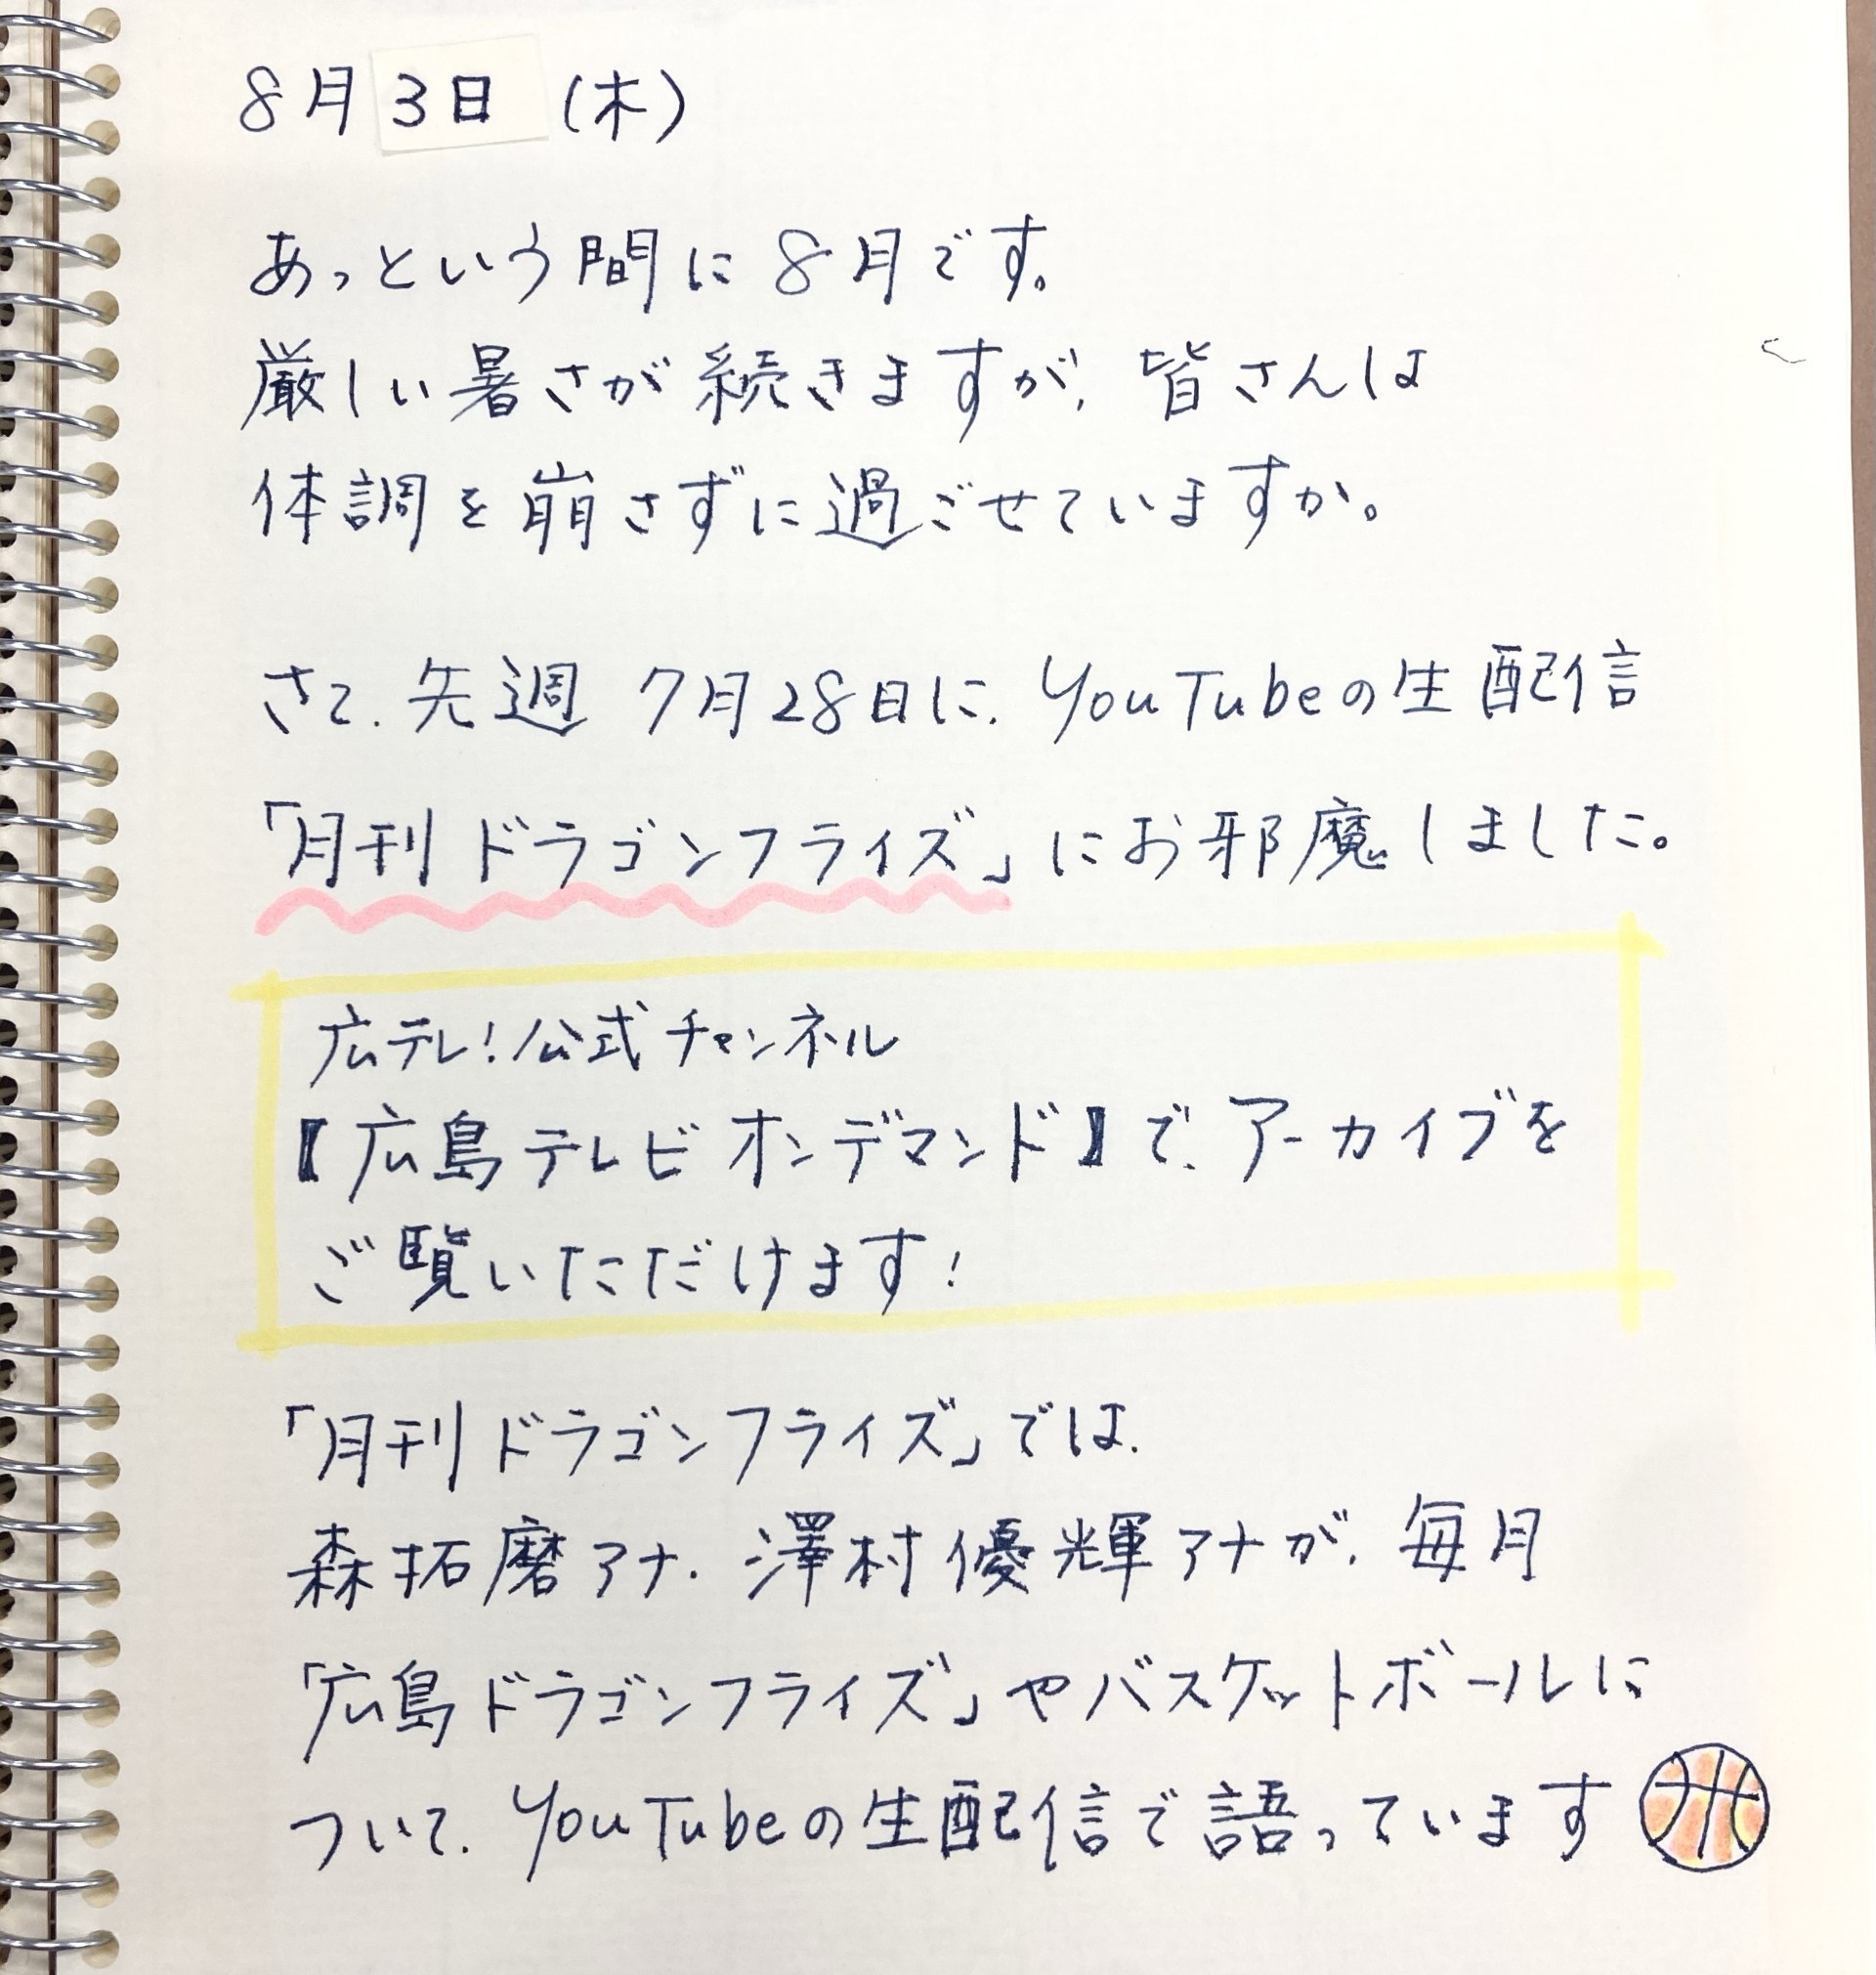 8月3日(木)
あっという間に8月です。
厳しい暑さが続きますが、皆さんは
体調を崩さずに過ごせていますか。
さて、先週 7月28日に、YouTubeの生配信
「月刊ドラゴンフライズ」にお邪魔しました。
広テレ!公式チャンネル
【広島テレビオンデマンド】で、アーカイブを
ご覧いただけます!
「月刊ドラゴンフライズ」では、
森拓磨アナ、澤村優輝アナが、毎月
「広島ドラゴンフライズ」やバスケットボールに
ついて、YouTubeの生配信で語っています